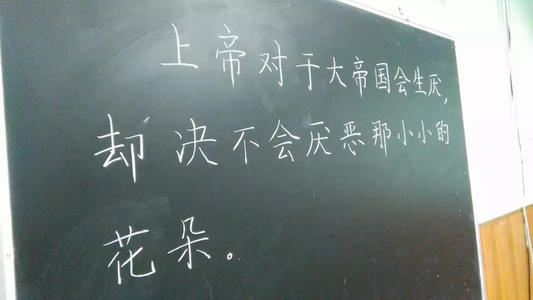 上帝对于大帝国会生厌,
却决不会厌恶那小小的
花朵。